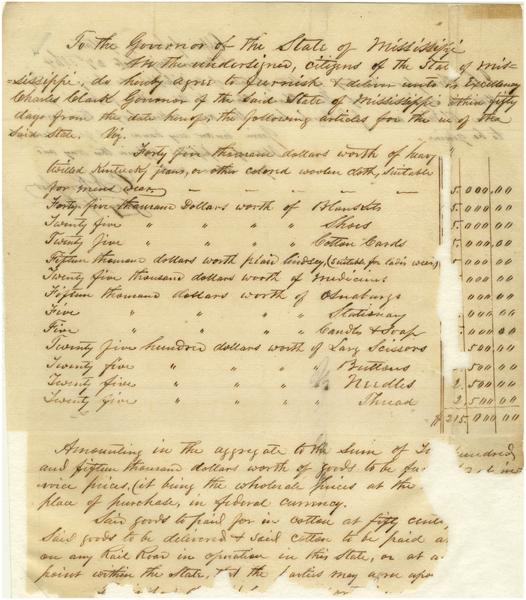 To the Governor of the State of Mississippi
We the undersigned, citizens of the State of Mis-
=sissippi, do hereby agree to furnish & deliver unto his Excellency
Charles Clark Governor of the said State of Mississippi within fifty
days from the date hereof, the following articles for the use of the
said State. Viz.
Forty five thousand dollars worth of heavy
twilled Kentucky jeans, or other colored woolen cloth, suitable
for mens wear, " " " " 5.000,00
Forty five thousand Dollars worth of Blankets 5.000,00
Twenty five " " " " Shoes 5.000,00
Twenty five " " " " Cotton Cards 5.000,00
Fifteen thousand dollars worth plain lindsey, (suitable for ladies wear) 000,00
Twenty five thousand dollars worth of Medicines 000,00
Fifteen thousand dollars worth of Osnaburgs 000,00
Five " " " " Stationary 000,00
Five " " " " Candles & Soap 000,00
Twenty five hundred dollars worth of Larg Scissors 500,00
Twenty five " " " " Buttons 500,00
Twenty five " " " " Needles 2.500,00
Twenty five " " " " Thread 2.500,00
$215.000,00
Amounting in the aggregate to the sum of Two hundred
and fifteen thousand dollars worth of goods to be at in-
voice prices, (it being the wholesale prices at the
place of purchase, in federal currency.
Said goods to paid for in cotton at fifty cents
Said goods to be delivered & said cotton to be paid
on any Rail Road in operation in this State, or at a
point within the State, that the parties may agree upon